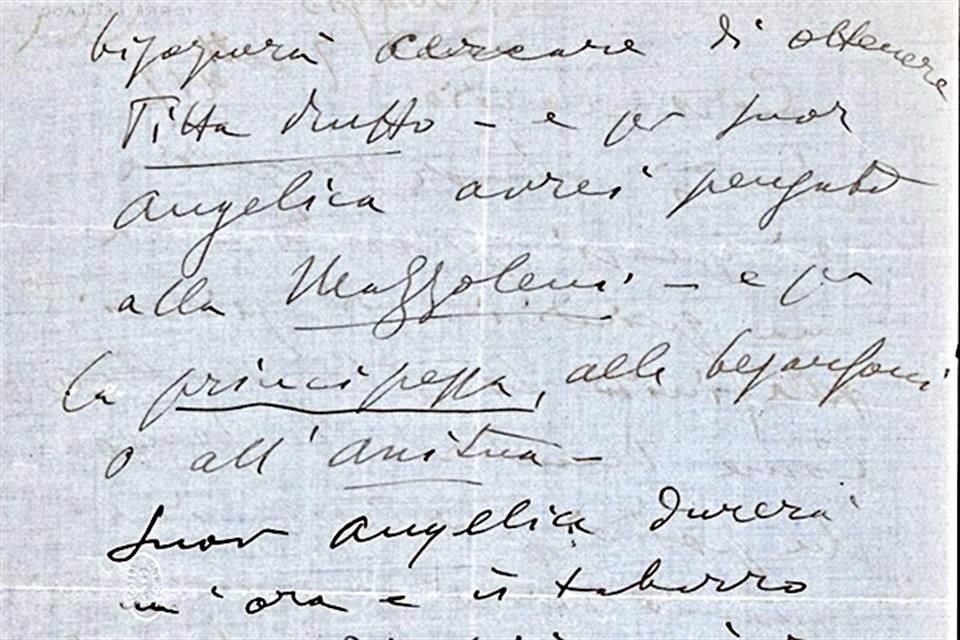 bisognerà cercare di ottenere
Titta Ruffo – e per Suor
Angelica avrei pensato
alla Mazzoleni – e per
la principessa, alla Besanzoni
o all'Anitua –
Suor Angelica durerà
un'ora e il tabarro